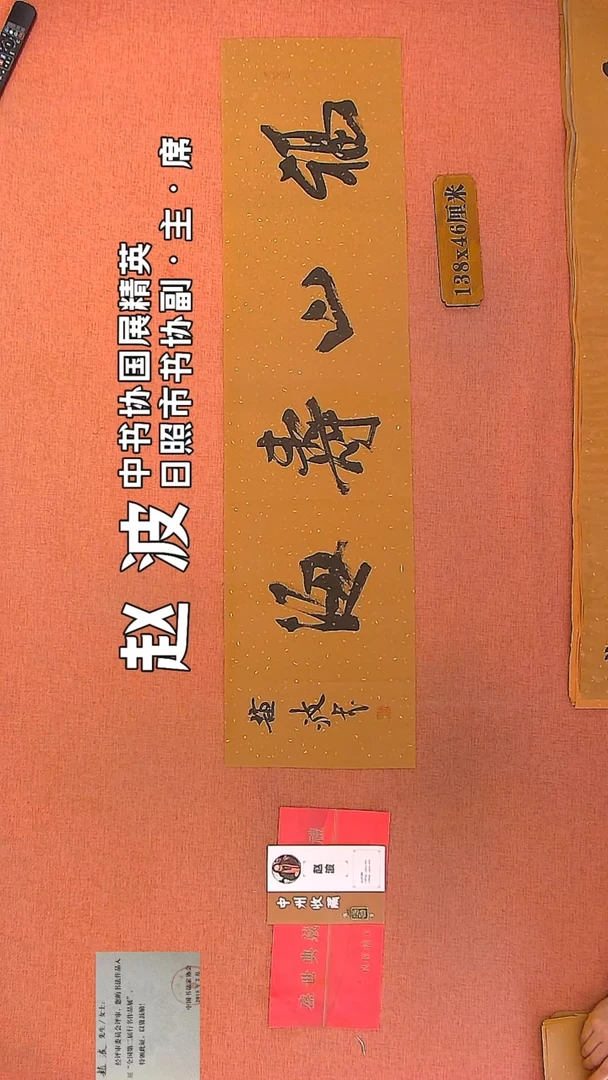 赵波
中书协国展精英
日照市书协副·主·席
福山壽海
赵波书
138x46厘米
赵波
中州收藏
盛世典藏
赵波 先生/女士:
经评审委员会评审,您的书法作品入
展“全国第二届行书作品展”,
特颁此证,以资鼓励!
中国书法家协会